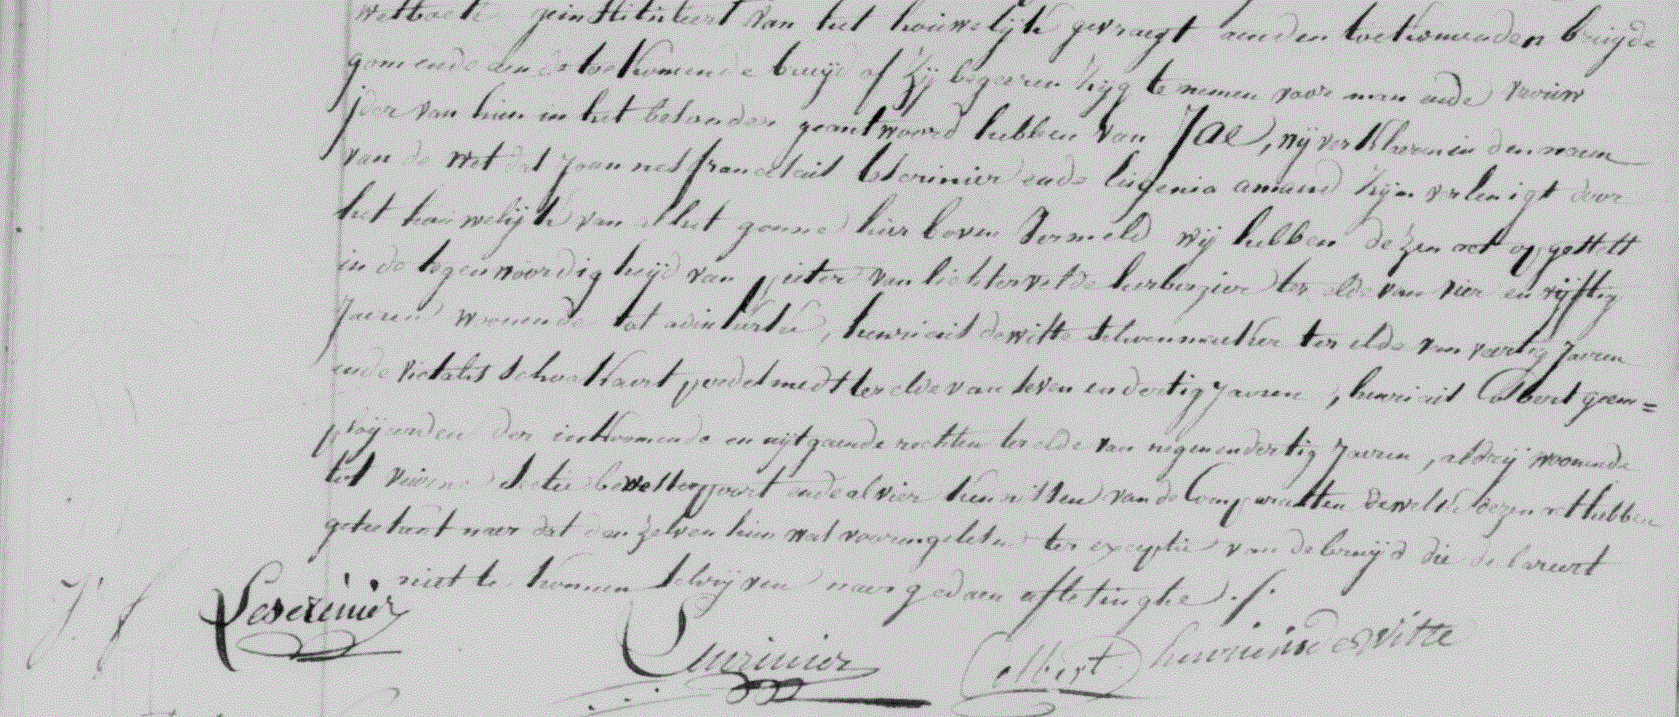 wetboek geinstitueert van het houwelijk gevraegt aen den toekomenden bruijde
gom ende aen de toekomende bruijd of zij begeeren zig te nemen voor man ende vrouw
jder van hun in het besonder geantwoord hebben van Jae, wij verkleren in den naem
van de wet dat Joannes francicus Leserinier ende Eugenia amand zijn vereenigt door
het houwelijk van al het gonne hier boven vermeld wij hebben dezen act opgestelt
in de tegenwoordigheyd van pieter van lichtervelde herbergier ter elde van vier en vijftig
Jaeren woonende tot , henricus dewitte schoenmaeker ter elde van veertig Jaeren
ende schockaert ter elde van seven en dertig Jaeren, henricus Colbert geem=
ployeerden der inkoomende en uijtgaende rechten ter elde van negenendertig Jaeren, al drij woonende
tot sectie bewesterpoort ende al vier kennissen van de Comparanten dewelke dezen act hebben
geteekent naer dat aen zelven hun was voorengelesen ter exceptie van de bruijd die de
niet te konnen schrijven naer gedaen aflesinghe ./.
J. f Leserinier
Leserinier Colbert henricus De Witte